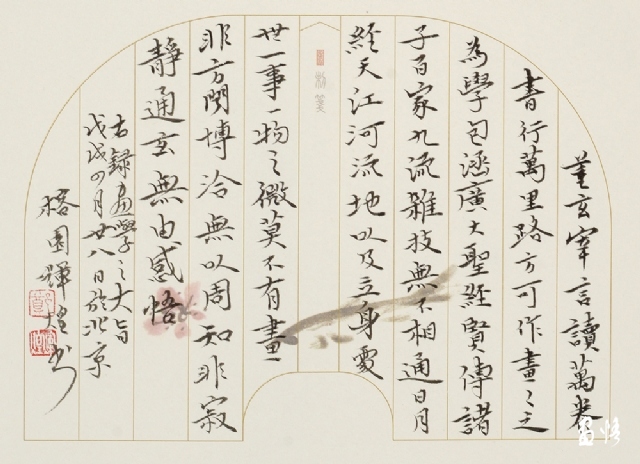 董玄宰言讀萬卷
書行萬里路方可作畫〻之
為學包涵廣大聖經賢傳諸
子百家九流雜技無不相通日月
經天江河流地以及立身處
世一事一物之微莫不有畫
非方聞博洽無以周知非寂
靜通玄無由感悟
右錄畫學之大旨
戊戌四月廿八日於北京